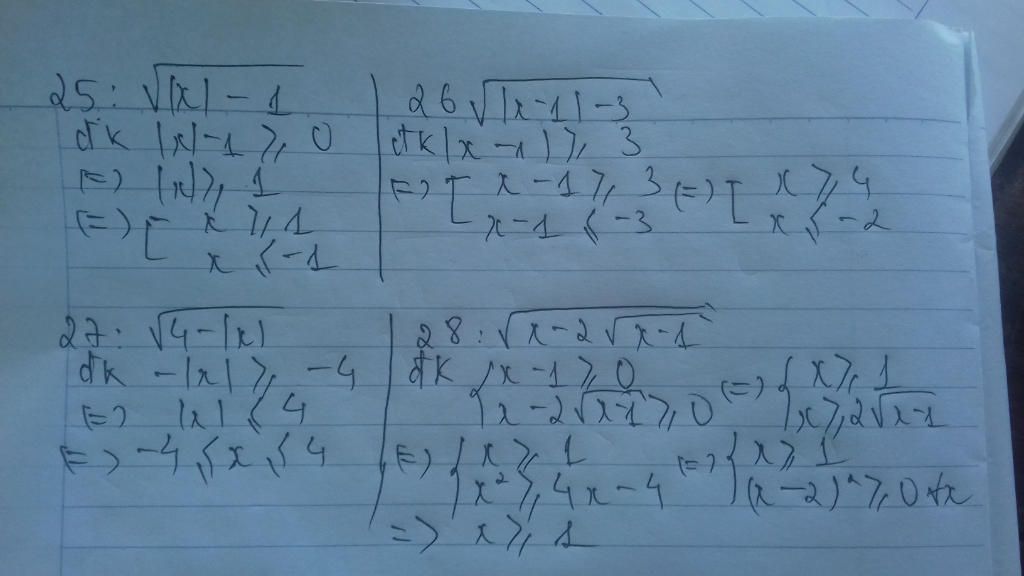 25: √(|x| - 1)
đk |x| - 1 ≥ 0
(=) |x| ≥ 1
(=) [ x ≥ 1
x ≤ -1
26 √(|x-1| - 3)
đk |x - 1| ≥ 3
(=) [ x - 1 ≥ 3 (=) [ x ≥ 4
x - 1 ≤ -3 x ≤ -2
27: √(4 - |x|)
đk -|x| ≥ -4
(=) |x| ≤ 4
(=> -4 ≤ x ≤ 4
28: √(x - 2√(x-1))
đk { x - 1 ≥ 0 (=) { x ≥ 1
x - 2√(x-1) ≥ 0 x ≥ 2√(x-1)
(=) { x ≥ 1 (=) { x ≥ 1
x² ≥ 4x - 4 (x - 2)² ≥ 0 ∀x
=> x ≥ 1